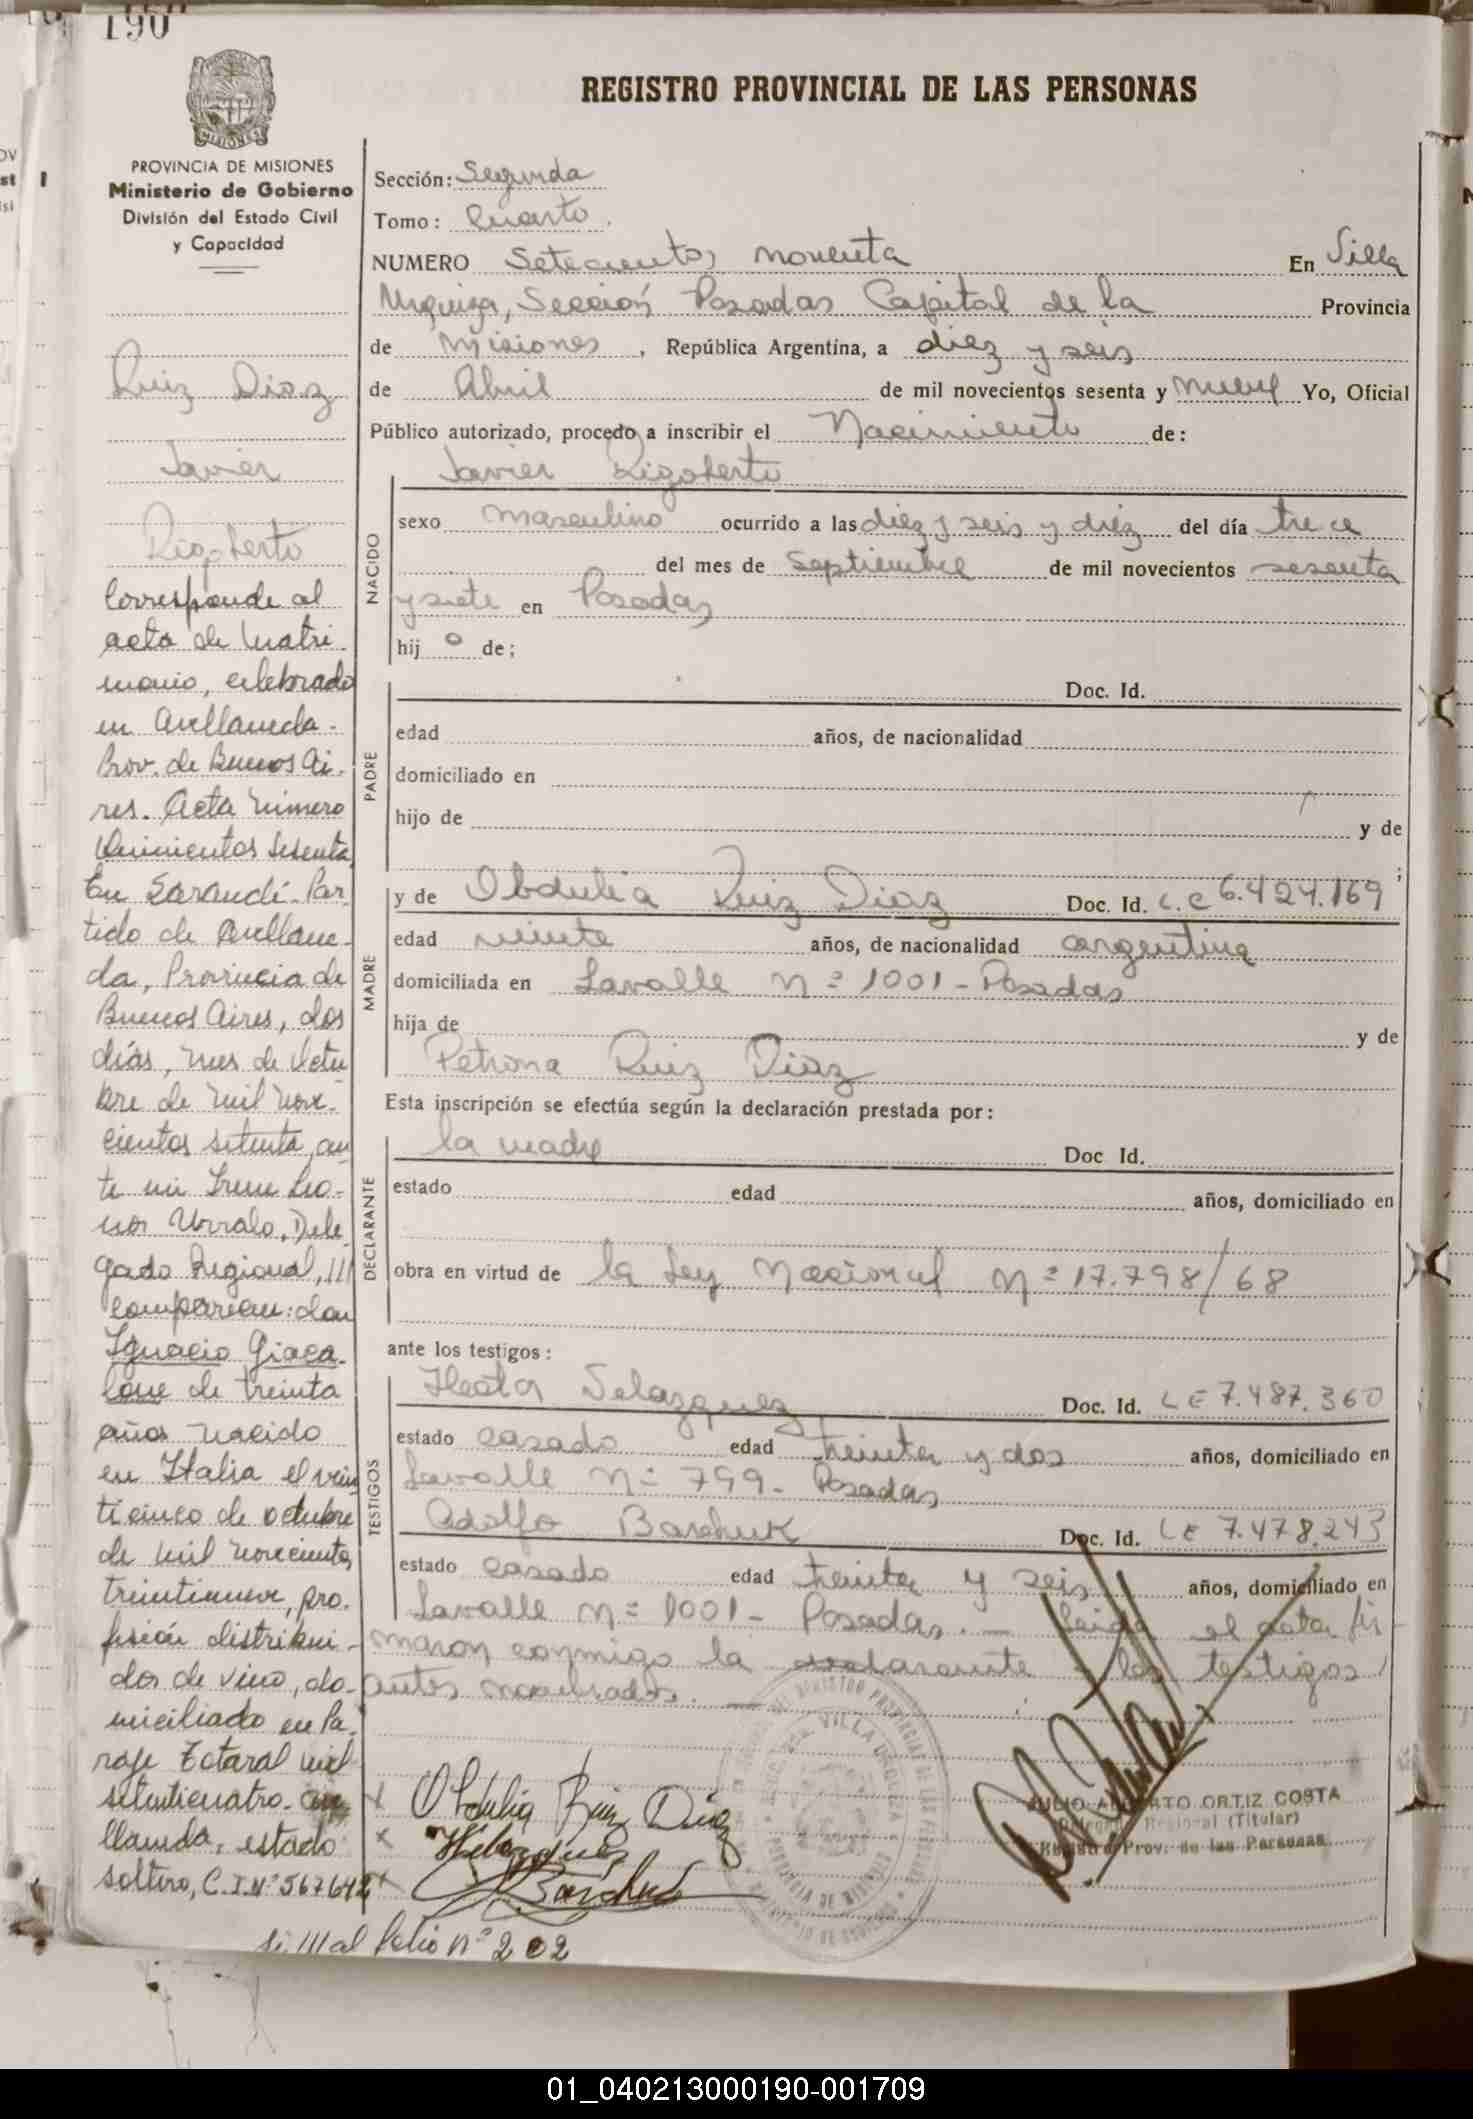 190
REGISTRO PROVINCIAL DE LAS PERSONAS
MISIONES
PROVINCIA DE MISIONES
Ministerio de Gobierno
División del Estado Civil
y Capacidad
Ruiz Diaz
Javier
Rigoberto
Corresponde al
acta de matri-
monio, celebrado
en Avellaneda-
Prov. de Buenos Ai-
res. Acta número
Quinientos sesenta
En Sarandí- Par-
tido de Avellane-
da, Provincia de
Buenos Aires, dos
días, mes de Octu-
bre de mil nove-
cientos setenta, an-
te mi Irene Leo-
nor Urralo, Dele-
gado Regional, ///
comparecen: don
Ignacio Giaca-
lone de treinta
años nacido
en Italia el vein
ticinco de octubre
de mil novecientos
treintinueve, pro-
fesión distribui-
dor de vino, do-
miciliado en Pa-
raje Totaral mil
setenticuatro- Ave
llaneda, estado
soltero, C.I.Nº 567642
Sección: Segunda
Tomo: Cuarto.
NUMERO Setecientos noventa En Villa
Urquiza, Sección Posadas Capital de la Provincia
de Misiones, República Argentina, a diez y seis
de Abril de mil novecientos sesenta y nueve Yo, Oficial
Público autorizado, procedo a inscribir el Nacimiento de:
NACIDO
Javier Rigoberto
sexo masculino ocurrido a las diez y seis y diez del día trece
del mes de Septiembre de mil novecientos sesenta
y siete en Posadas
hij o de;
PADRE
Doc. Id.
edad años, de nacionalidad
domiciliado en
hijo de y de
;
MADRE
y de Obdulia Ruiz Diaz Doc. Id. L.C 6.424.169
edad veinte años, de nacionalidad argentina
domiciliada en Lavalle Nº 1001 - Posadas
hija de y de
Petrona Ruiz Diaz
Esta inscripción se efectúa según la declaración prestada por:
DECLARANTE
la madre Doc Id.
estado edad años, domiciliado en
obra en virtud de la Ley Nacional Nº 17.798/68
ante los testigos:
TESTIGOS
Hector Velazquez Doc. Id. LE 7.487.360
estado casado edad treinta y dos años, domiciliado en
Lavalle Nº 799- Posadas
Adolfo Barchuk Doc. Id. LE 7.478.243
estado casado edad treinta y seis años, domiciliado en
Lavalle Nº 1001- Posadas.- Leida el acta fir-
maron conmigo la declarante y los testigos
antes nombrados.-
x Obdulia Ruiz Diaz
x HVelazquez
x Barchuk
VILLA URQUIZA
JULIO ALBERTO ORTIZ COSTA
Delegado Regional (Titular)
Registro Prov. de las Personas
Si /// al folio nº 202
01_040213000190-001709